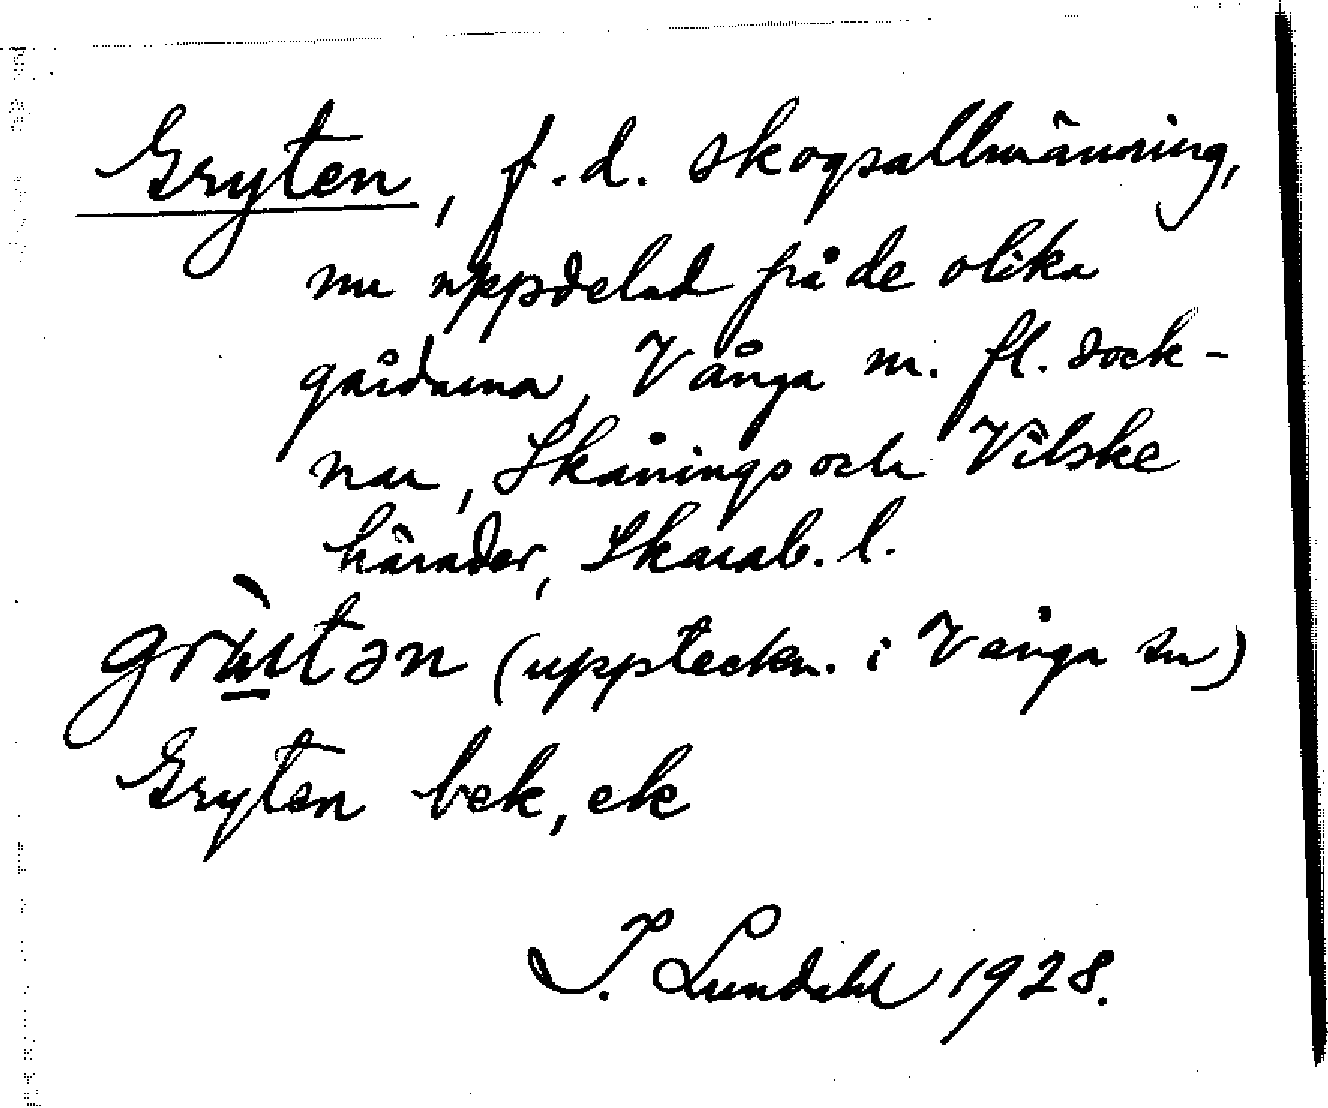 Gryten, f.d. skogsallmänning,
nu uppdelad på de olika
gårdarna, Vånga m. fl. sock-
nar, Skånings och Vilske
härader, Skarab. l.
(uppteckn. i Vånga sn)
Gryten bek, ek
I. Lundahl 1928.